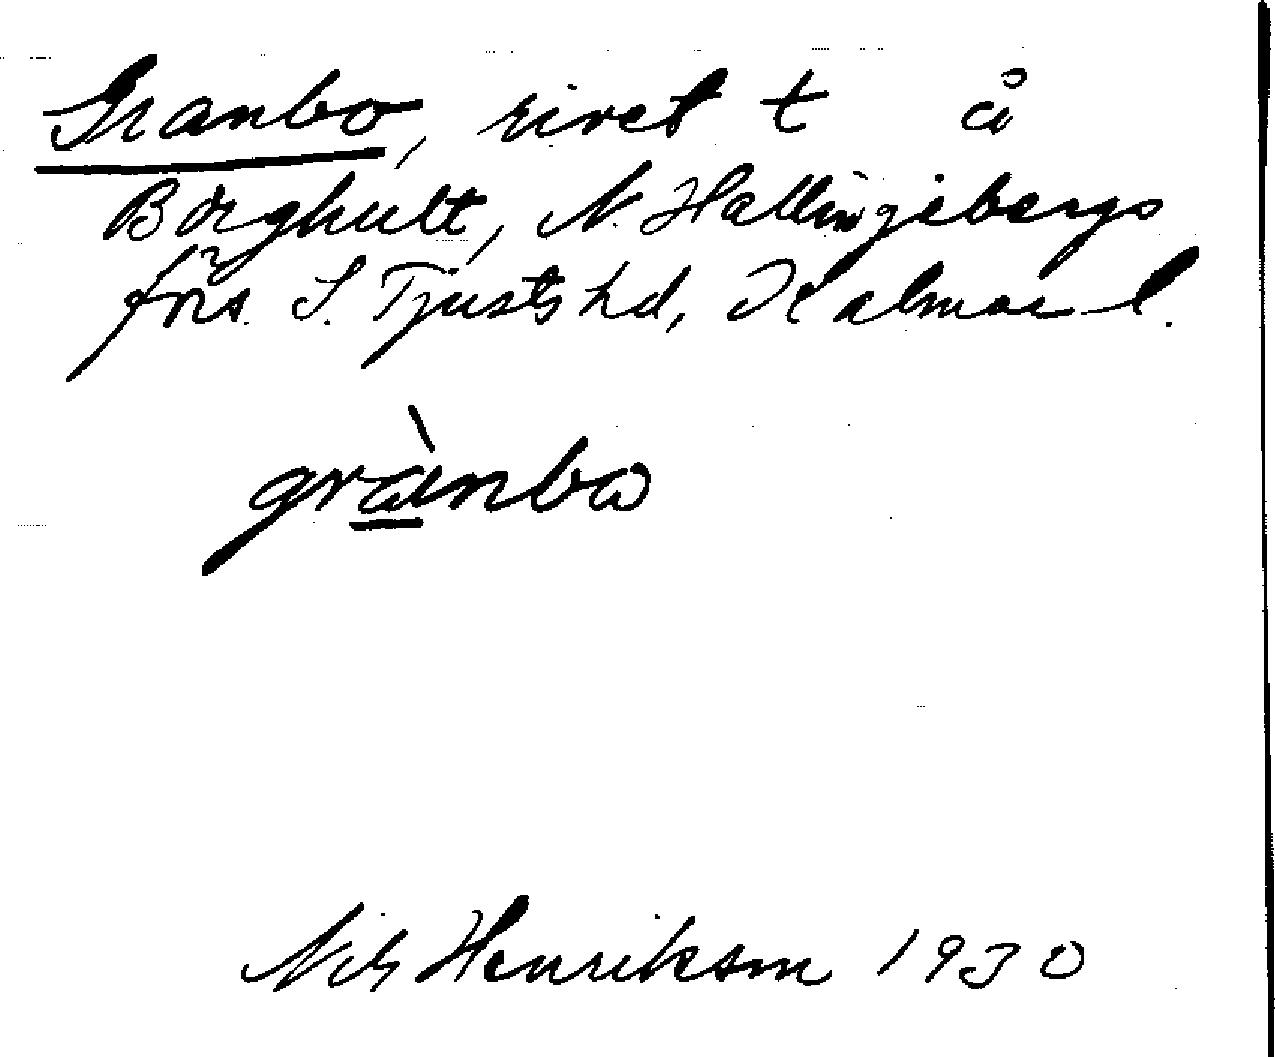 Granbo, rivet t å
Borghult, N. Hallingebergs
förs. S. Tjusts hd, Kalmar l.
grànbo
Nils Henrikson 1930